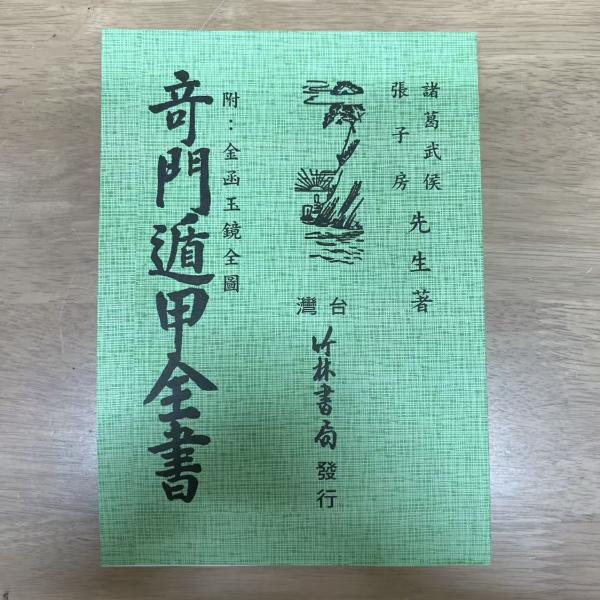 諸葛武侯
張子房
先生著
台灣
竹林書局
發行
附：金函玉鏡全圖
奇門遁甲全書